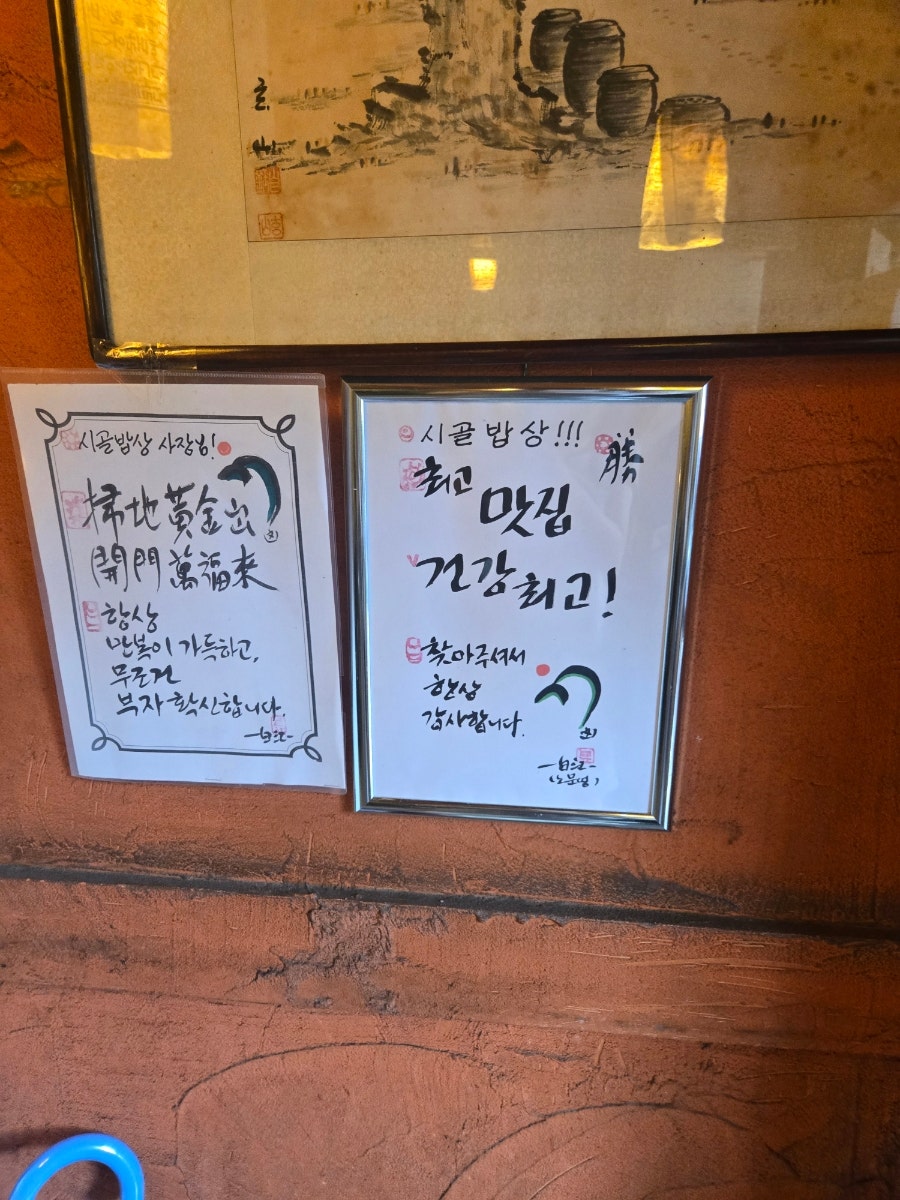 시골밥상 사장님!
掃地黃金出
開門萬福來
항상
만복이 가득하고,
무조건
부자 확신합니다.
시골밥상!!!
勝
최고
맛집
건강 최고!
찾아주셔서
항상
감사합니다.